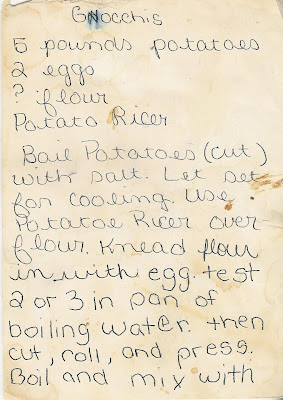 Gnocchis
5 pounds potatoes
2 eggs
? flour
Potato Ricer
Boil Potatoes (cut)
with salt. Let set
for cooling. Use
Potatoe Ricer over
flour. Knead flour
in with egg. test
2 or 3 in pan of
boiling water. then
cut, roll, and press.
Boil and mix with